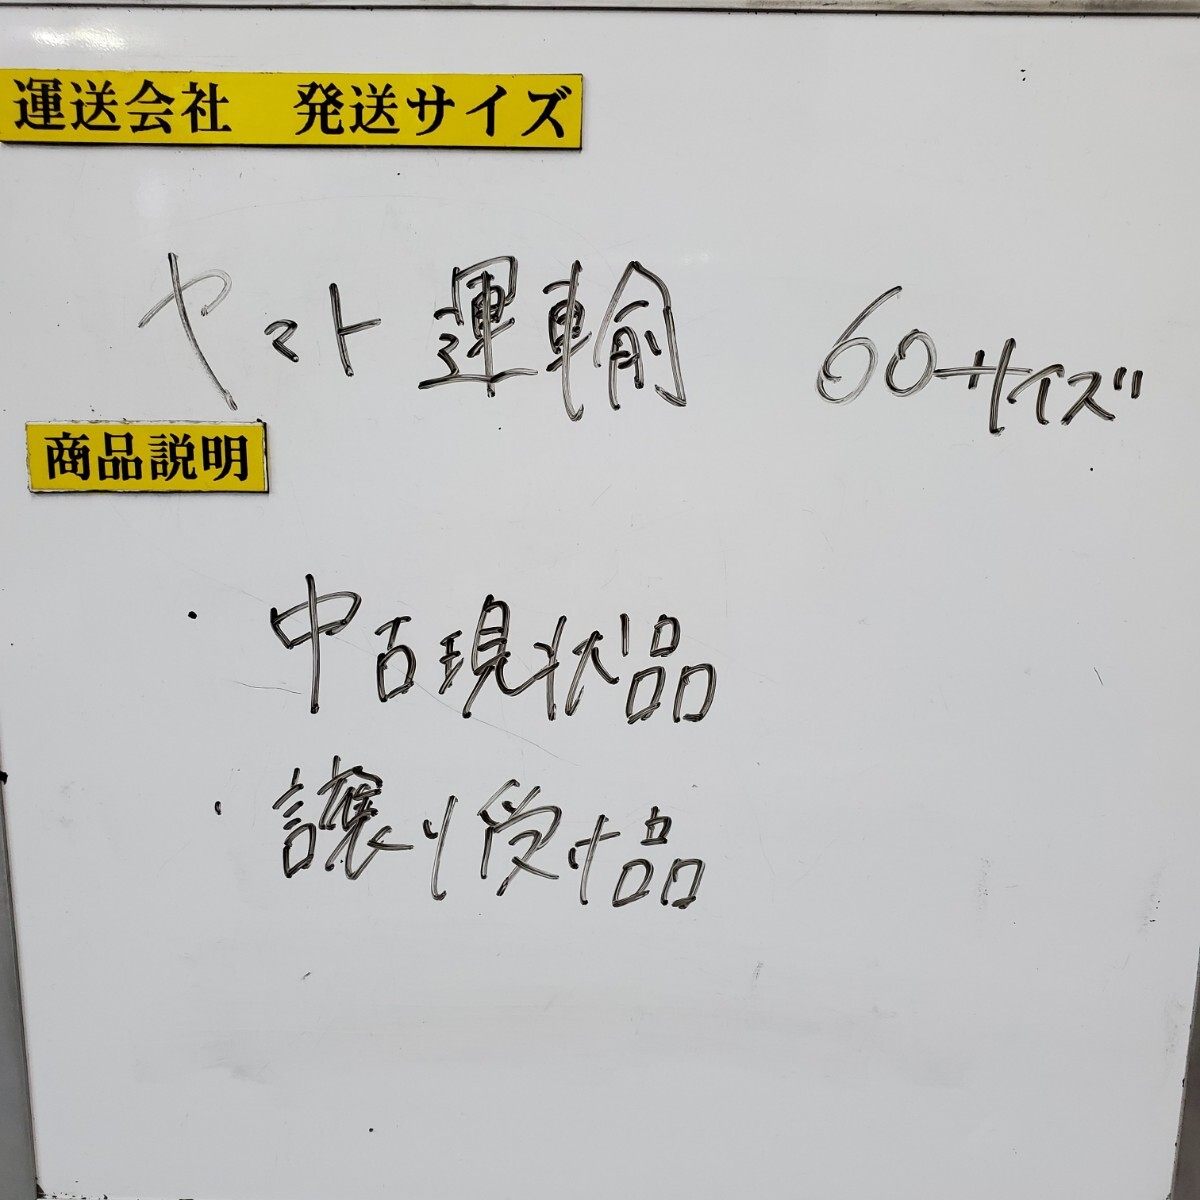 運送会社　発送サイズ
ヤマト運輸　60サイズ
商品説明
・中古現状品
・譲り受け品